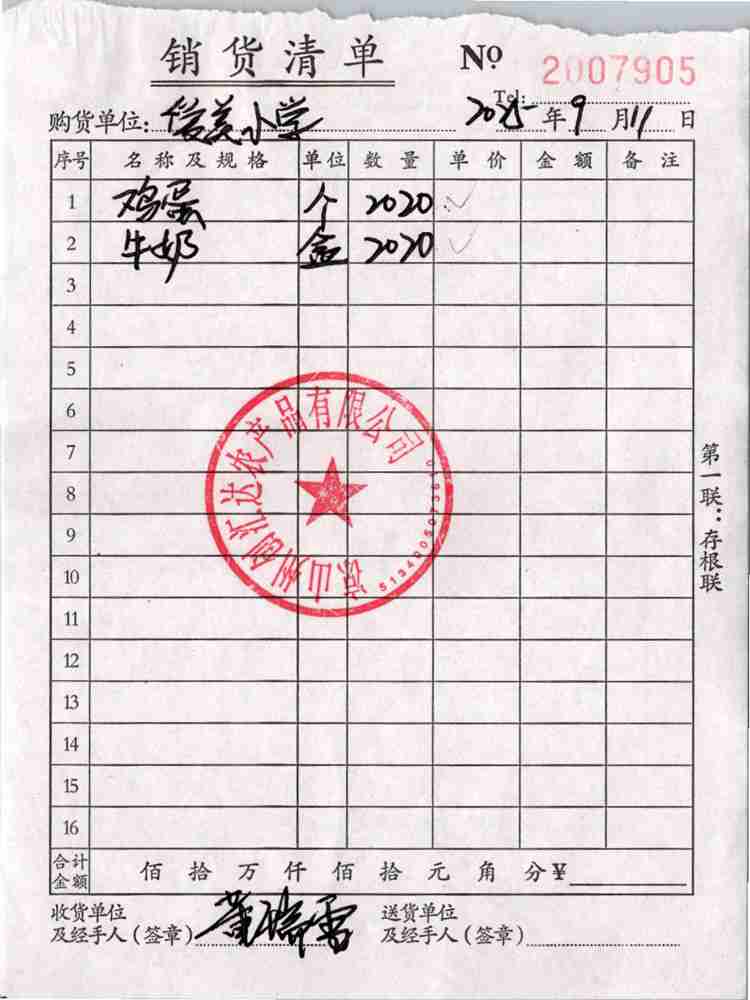 销货清单 No 2007905
Tel:
购货单位: 小学 2025年9月11日
序号 名称及规格 单位 数量 单价 金额 备注
1 鸡蛋 个 2020
2 牛奶 盒 2020
3
4
5
6
7
8
9
10
11
12
13
14
15
16
凉山州创汇达农产品有限公司
第一联:存根联
合计金额 佰拾万仟佰拾元角分¥
收货单位 送货单位
及经手人(签章) 及经手人(签章)